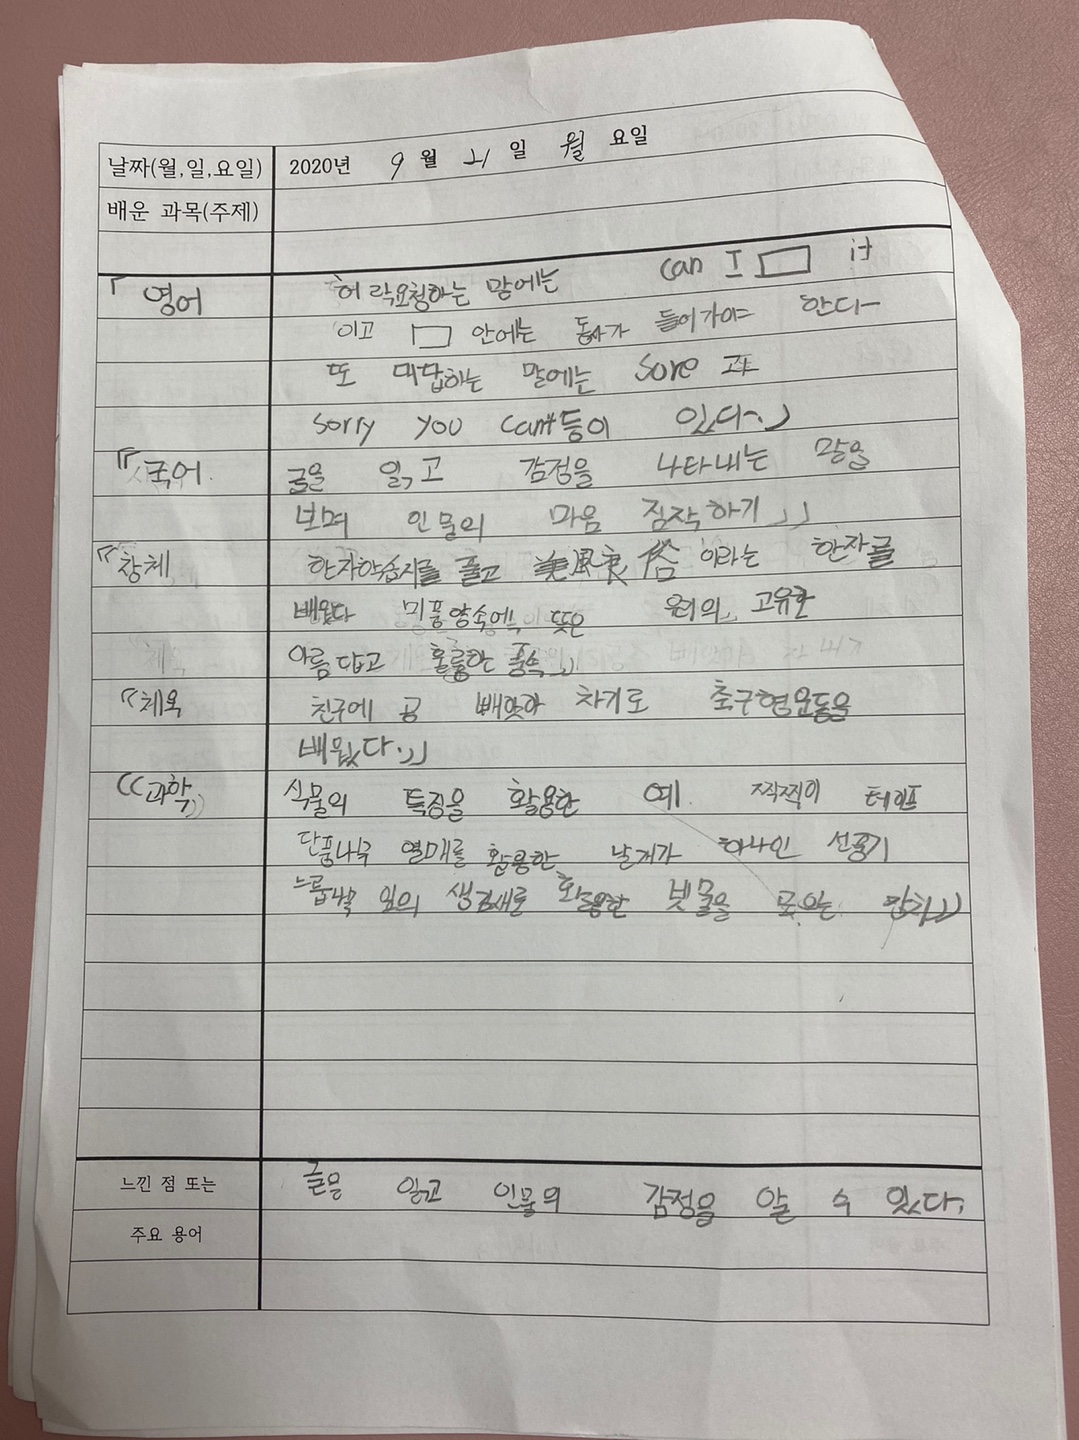 날짜(월,일,요일) 2020년 9 월 21 일 월 요일
배운 과목(주제)
「영어 허락요청하는 말에는 can I □ it
이고 □ 안에는 동사가 들어가야 한다-
또 대답하는 말에는 Sore 과
sorry you can't등이 있다.」
『국어 글을 읽고 감정을 나타내는 말을
보며 인물의 마음 짐작하기』
『창체 한자학습지를 풀고 美風良俗 이라는 한자를
배웠다 미풍양속에 뜻은 우리의 고유한
아름답고 훌륭한 풍속』
『체육 친구에 공 빼앗아 차기로 축구형운동을
배웠다.』
((과학)) 식물의 특징을 활용한 예 찍찍이 테이프
단풍나무 열매를 활용한 날개가 하나인 선풍기
느릅나무 잎의 생김새를 활용한 빗물을 모으는 장치))
느낀 점 또는 글을 읽고 인물의 감정을 알 수 있다.
주요 용어